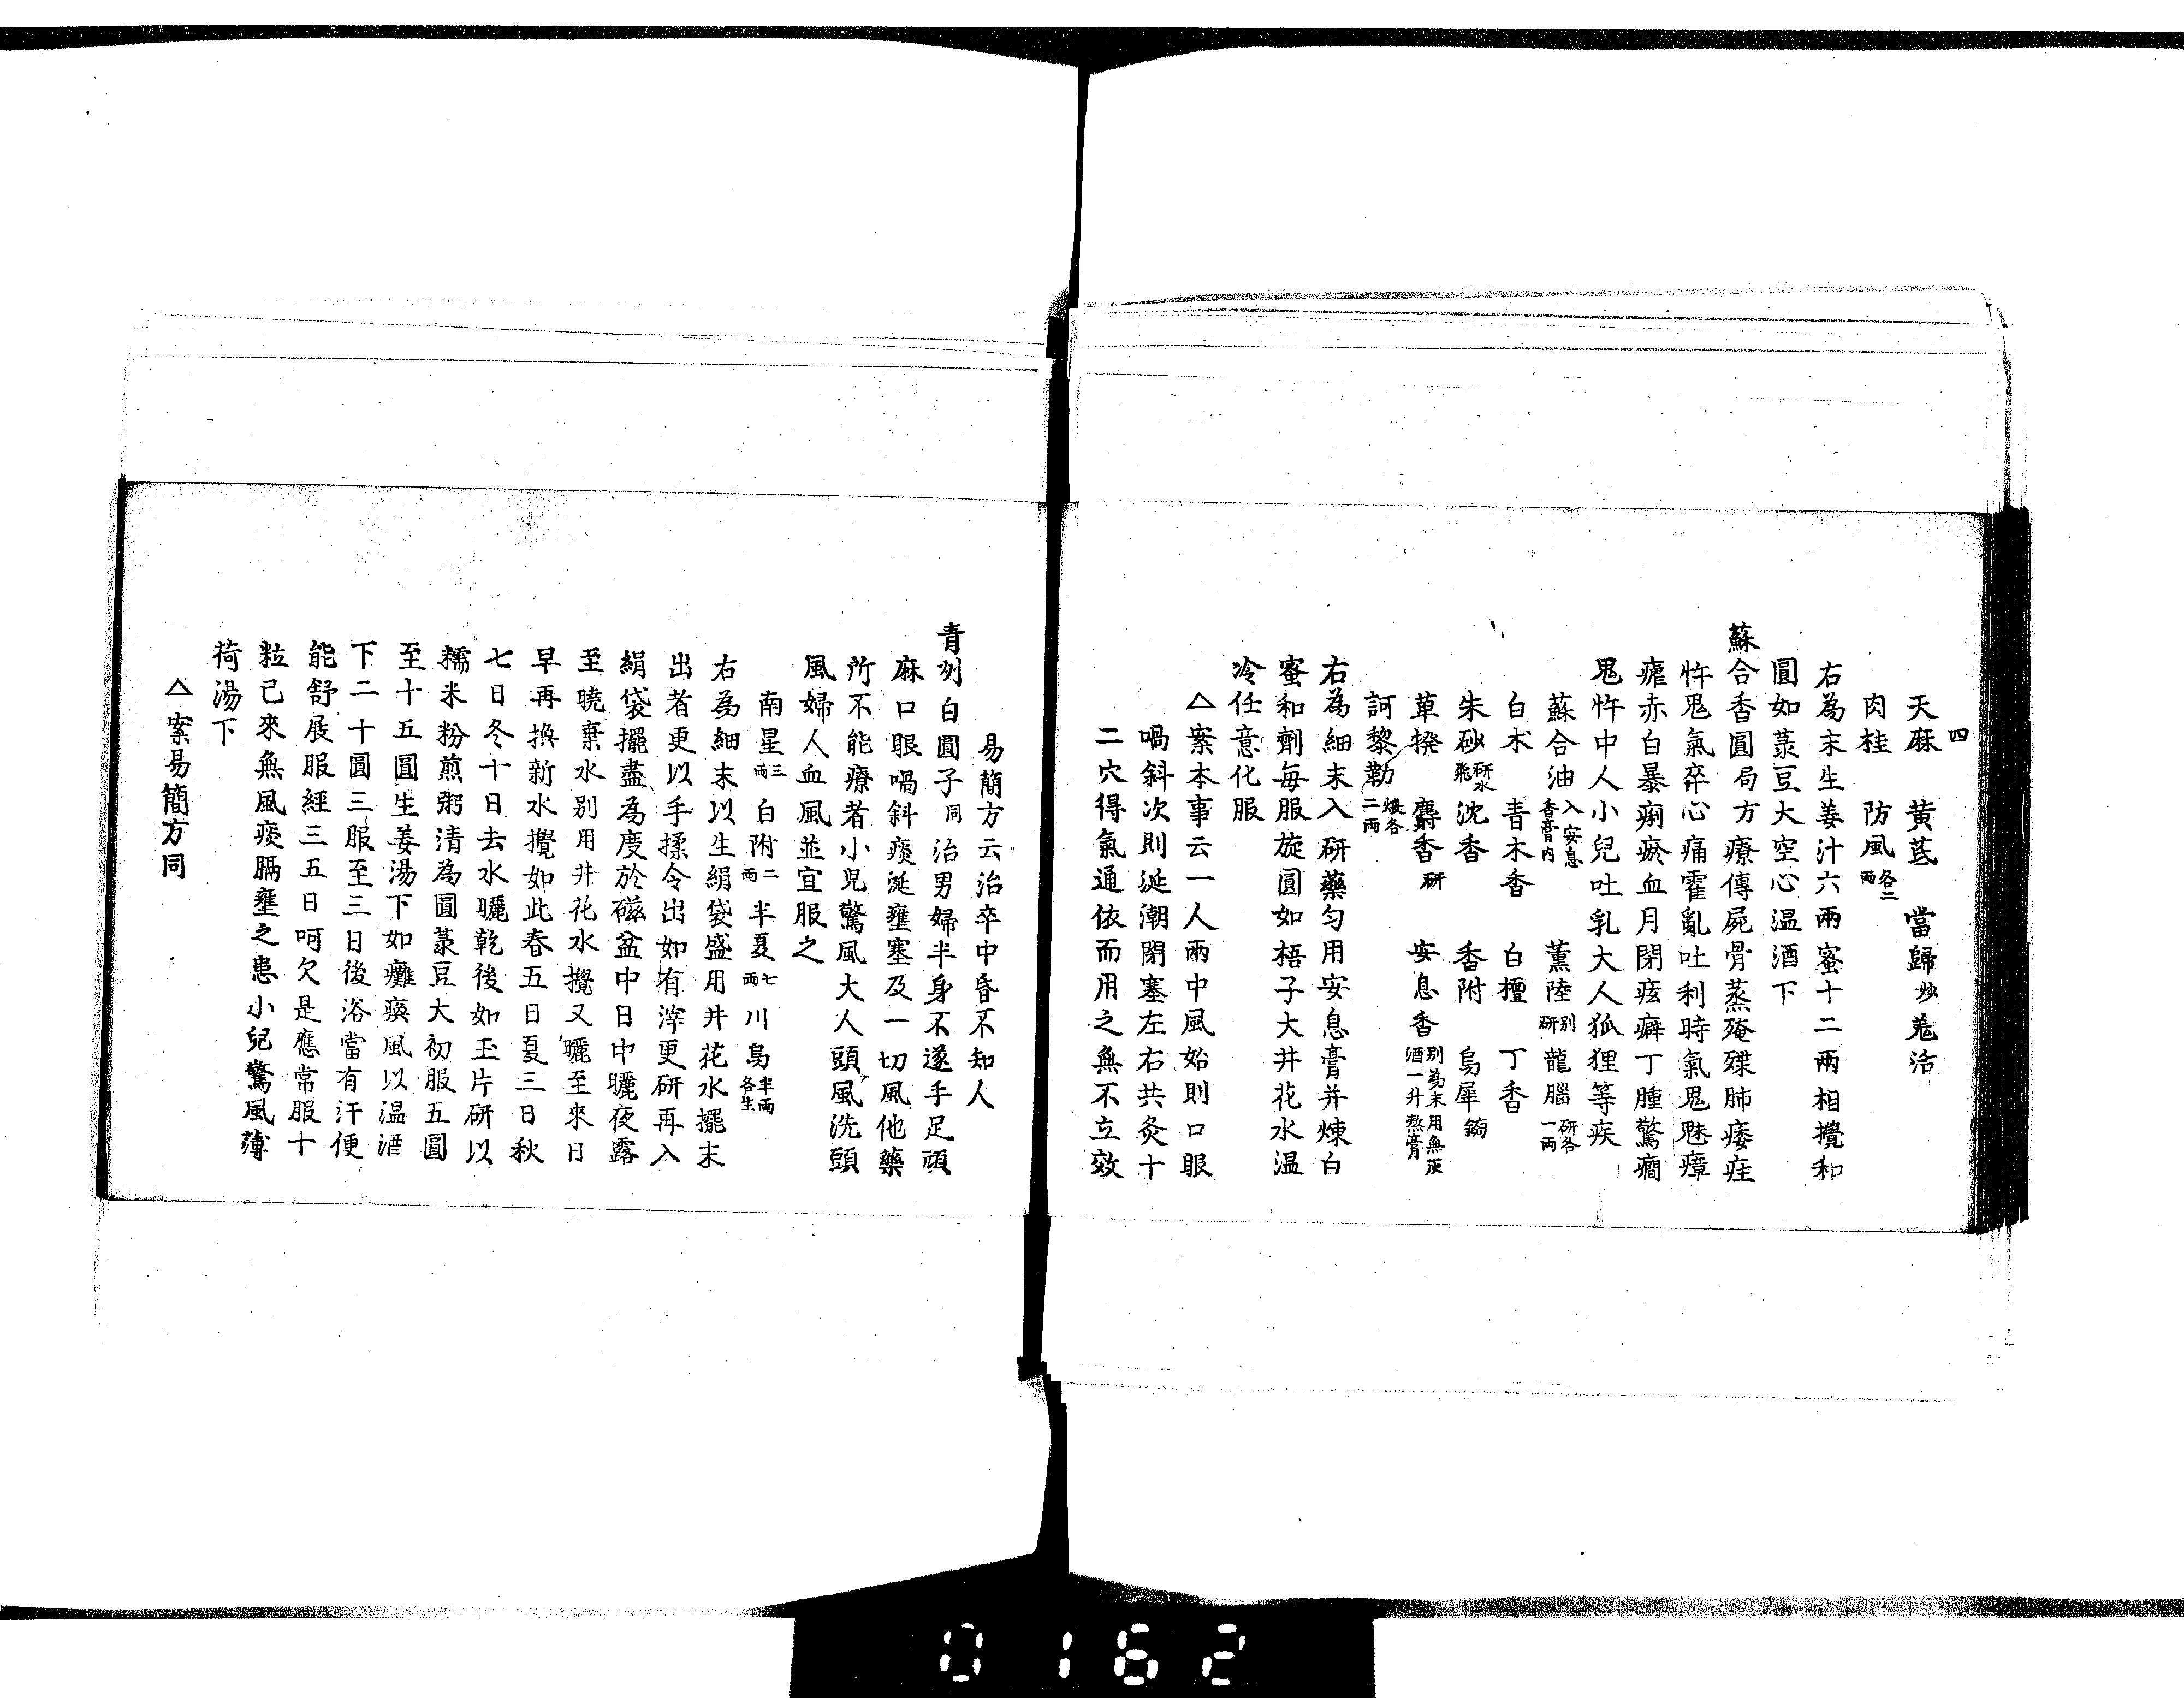 四
天麻 黄芪 當歸炒 羗活
肉桂 防風各二兩
右為末生姜汁六兩蜜十二兩相攪和
圓如菉豆大空心温酒下
蘇合香圓局方療傳屍骨蒸殗殜肺痿疰
忤鬼氣卒心痛霍亂吐利時氣鬼魅瘴
瘧赤白暴痢瘀血月閉痃癖丁腫驚癇
鬼忤中人小兒吐乳大人狐狸等疾
蘇合油入安息香膏内 薫陸别研 龍腦研各一兩
白朮 青木香 白檀 丁香
朱砂研水飛 沈香 香附 烏犀鎊
蓽撥 麝香研 安息香别為末用無灰酒一升熬膏
訶黎勒煨各二兩
右為細末入研藥匀用安息膏并煉白
蜜和劑每服旋圓如梧子大井花水温
冷任意化服
△案本事云一人兩中風始則口眼
喎斜次則涎潮閉塞左右共灸十
二穴得氣通依而用之無不立效
易簡方云治卒中昏不知人
青州白圓子同治男婦半身不遂手足頑
麻口眼喎斜痰涎壅塞及一切風他藥
所不能療者小児驚風大人頭風洗頭
風婦人血風並宜服之
南星三兩 白附二兩 半夏七兩 川烏半兩各生
右為細末以生絹袋盛用井花水擺末
出者更以手揉令出如有滓更研再入
絹袋擺盡為度於磁盆中日中曬夜露
至曉棄水别用井花水攪又曬至來日
早再換新水攪如此春五日夏三日秋
七日冬十日去水曬乾後如玉片研以
糯米粉煎粥清為圓菉豆大初服五圓
至十五圓生姜湯下如癱瘓風以温酒
下二十圓三服至三日後浴當有汗便
能舒展服經三五日呵欠是應常服十
粒已來無風痰膈壅之患小兒驚風薄
荷湯下
△案易簡方同
0162